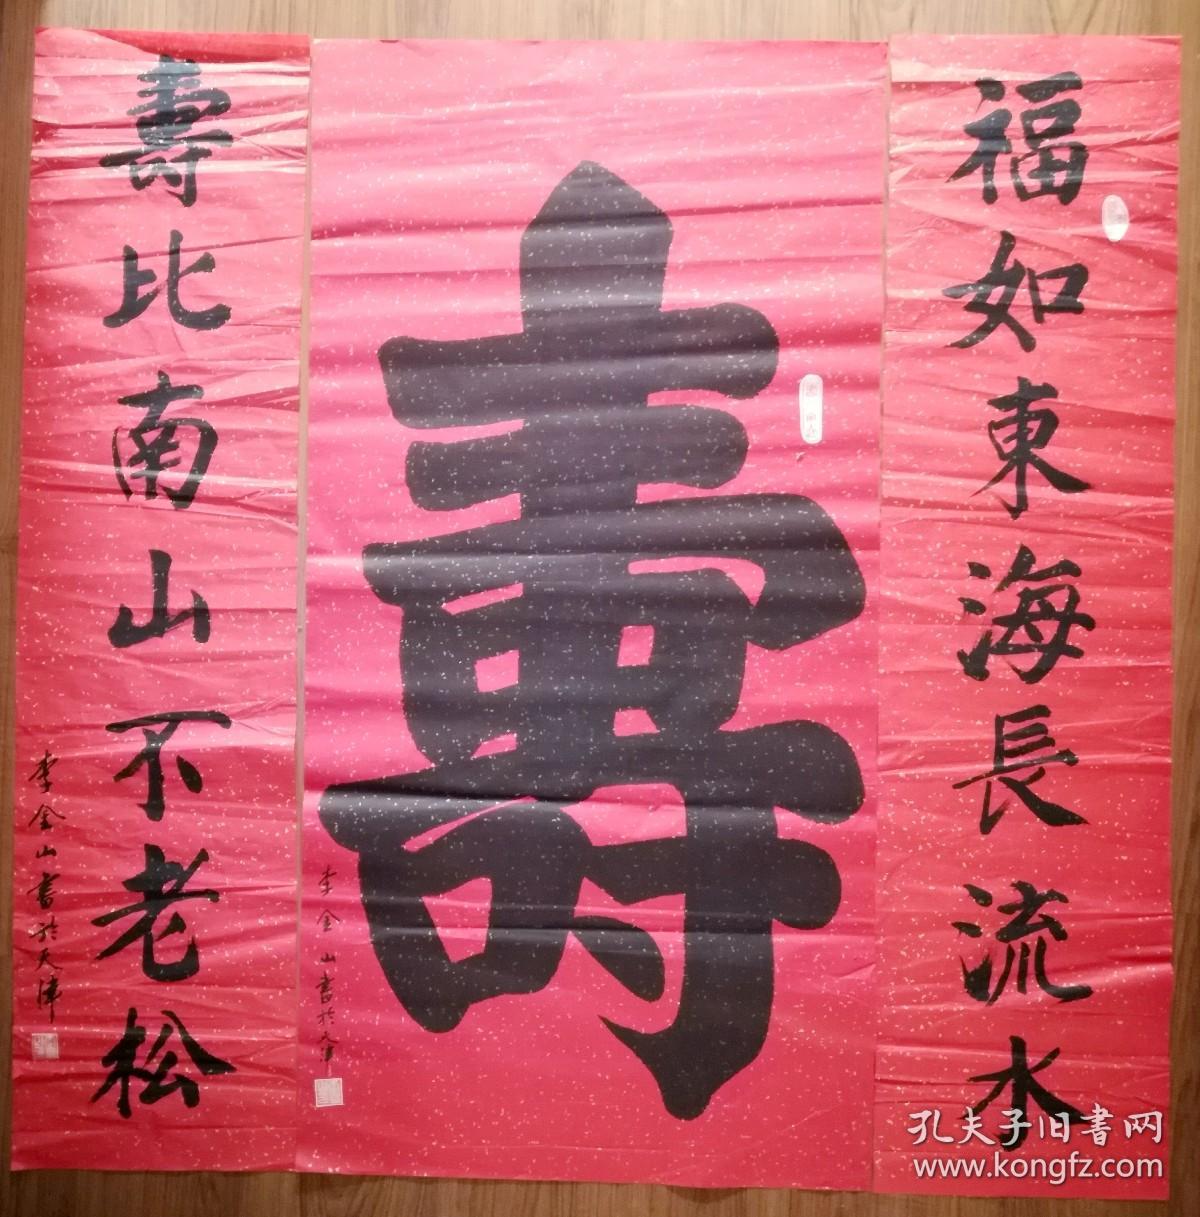 福如東海長流水
壽
李金山書於天津
壽比南山不老松
李金山書於天津
孔夫子旧書网
www.kongfz.com